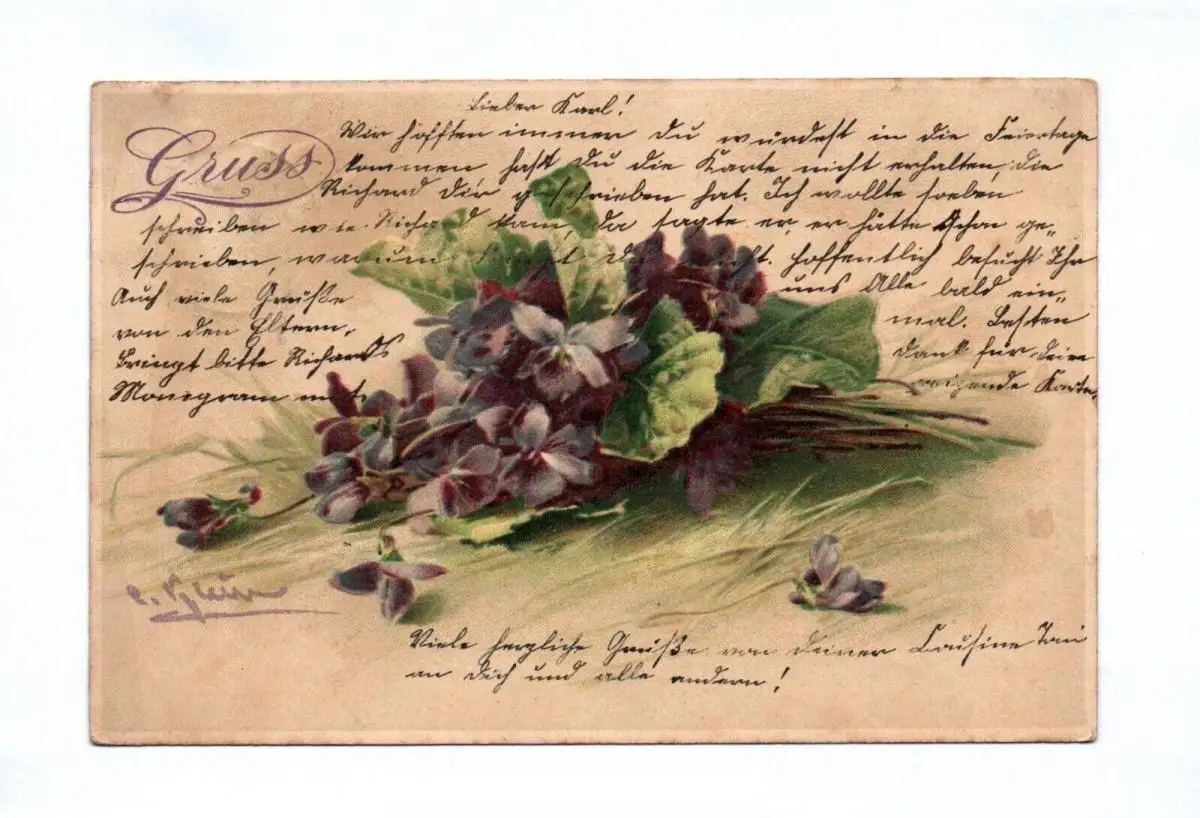 Gruss
Lieber Karl!
Wir hofften immer du würdest in die Feiertage
kommen hast du die Karte nicht erhalten, die
Richard dir geschrieben hat. Ich wollte soeben
schreiben wie Richard kam, da sagte er, er hätte schon ge-
schrieben, warum kommst du nicht. Hoffentlich besucht Ihr
uns Alle bald ein-
mal. Besten
Dank für deine
reizende Karte.
Auch viele Grüße
von den Eltern,
bringt bitte Richards
Monogram mit.
C. Klein
Viele herzliche Grüße von deiner Cousine
an dich und alle andern!